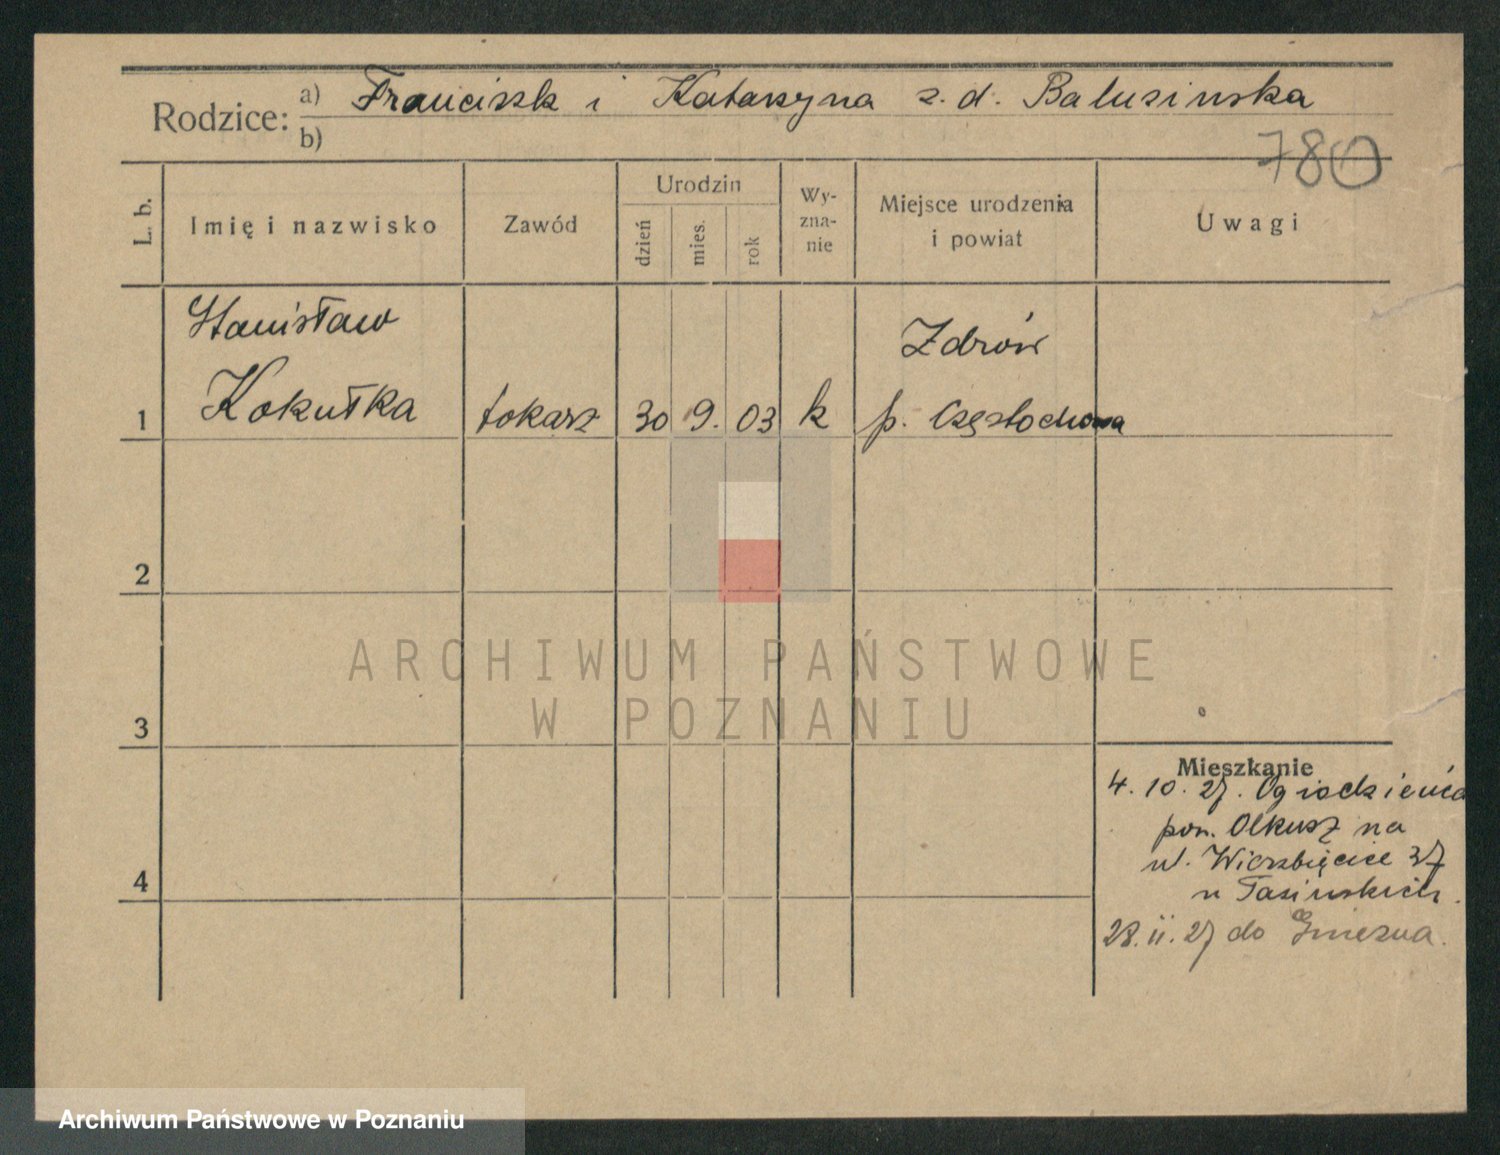 Rodzice: a) Franciszk i Katarzyna z. d. Baluzinska
b)
780
L. b.
Imię i nazwisko
Zawód
Urodzin
dzień
mies.
rok
Wy-
zna-
nie
Miejsce urodzenia
i powiat
Uwagi
Stanisław
Zdrów
1 Kokułka tokarz 30 9. 03 k p. Częstochowa
2
3
ARCHIWUM PAŃSTWOWE
W POZNANIU
Mieszkanie
4. 10. 27. Ogrodzieńca
pow. Olkusz na
ul. Wierzbięcice 37
4
u Tasińskich.
28. 11. 27 do Gniezna.
Archiwum Państwowe w Poznaniu